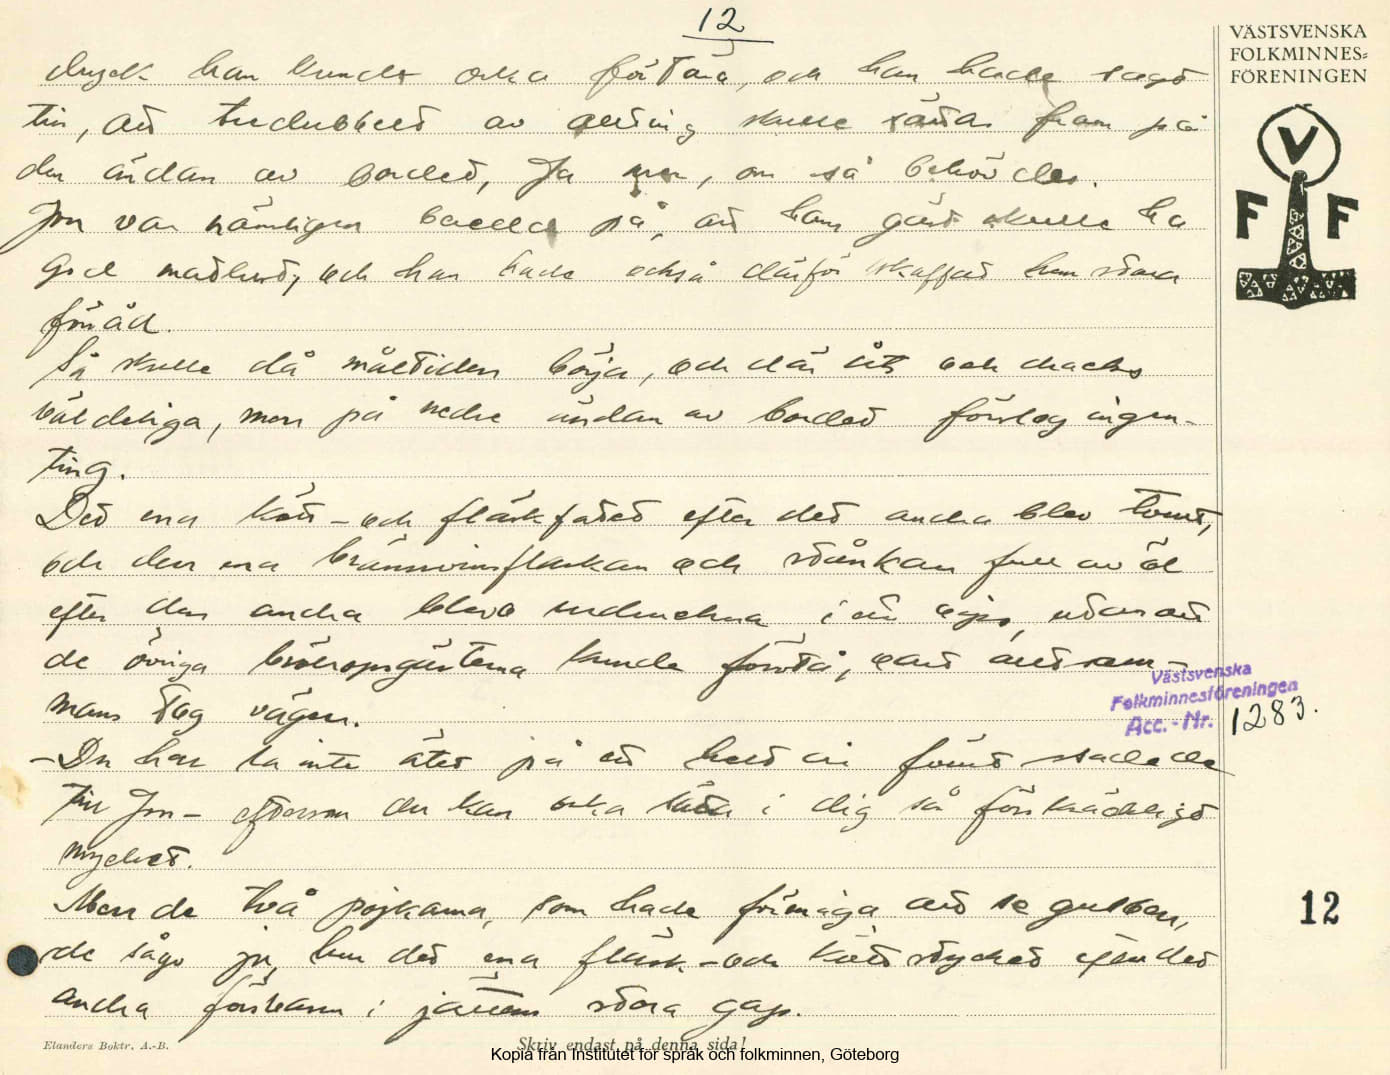 12
VÄSTSVENSKA
FOLKMINNES=
FÖRENINGEN
V
F F
dryck han kunde orka förtära, och han hade sagt
till, att tredubbelt av allting skulle sättas fram på
den ändan av bordet, Ja mer, om så behövdes.
Jon var nämligen på, att hans gård skulle ha
god och han hade också därför skaffat hem stora
förråd.
Så skulle då måltiden börja, och där åts och dracks
väldeliga, men på nedre ändan av bordet förslog ingen-
ting.
Det ena kött- och fläskfatet efter det andra blev tomt,
och den ena brännvinsflaskan och stånkan full av öl
efter den andra blevo urdruckna i ett nu, utan att
de övriga bröllopsgästerna kunde förstå, vart alltsam-
mans tog vägen.
- Du har la inte ätet på ett helt år förut
till Jon - eftersom du kan orka sätta i dig så förskräckligt
mycket.
Men de två pojkarna, som hade förmåga att se gubben,
de sågo ju, hur det ena fläsk- och köttstycket efter det
andra försvann i jättens stora gap.
Västsvenska
Folkminnesföreningen
Acc. - Nr. 1283.
12
Elanders Boktr. A.-B.
Skriv endast på denna sida!
Kopia från Institutet för språk och folkminnen, Göteborg